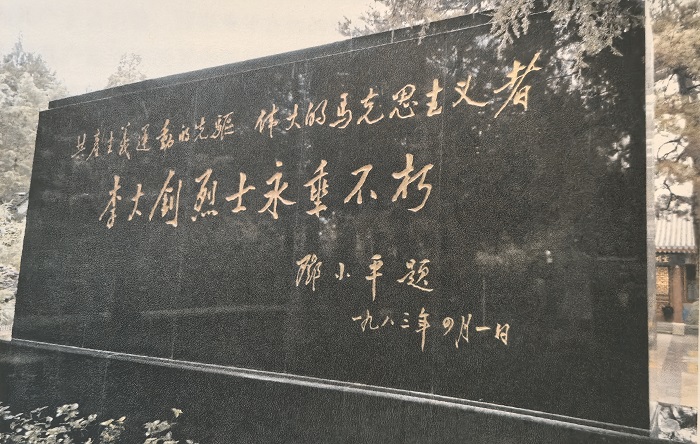 共產主義運動的先驅 伟大的馬克思主义者
李大钊烈士永垂不朽
鄧小平題
一九八三年四月一日